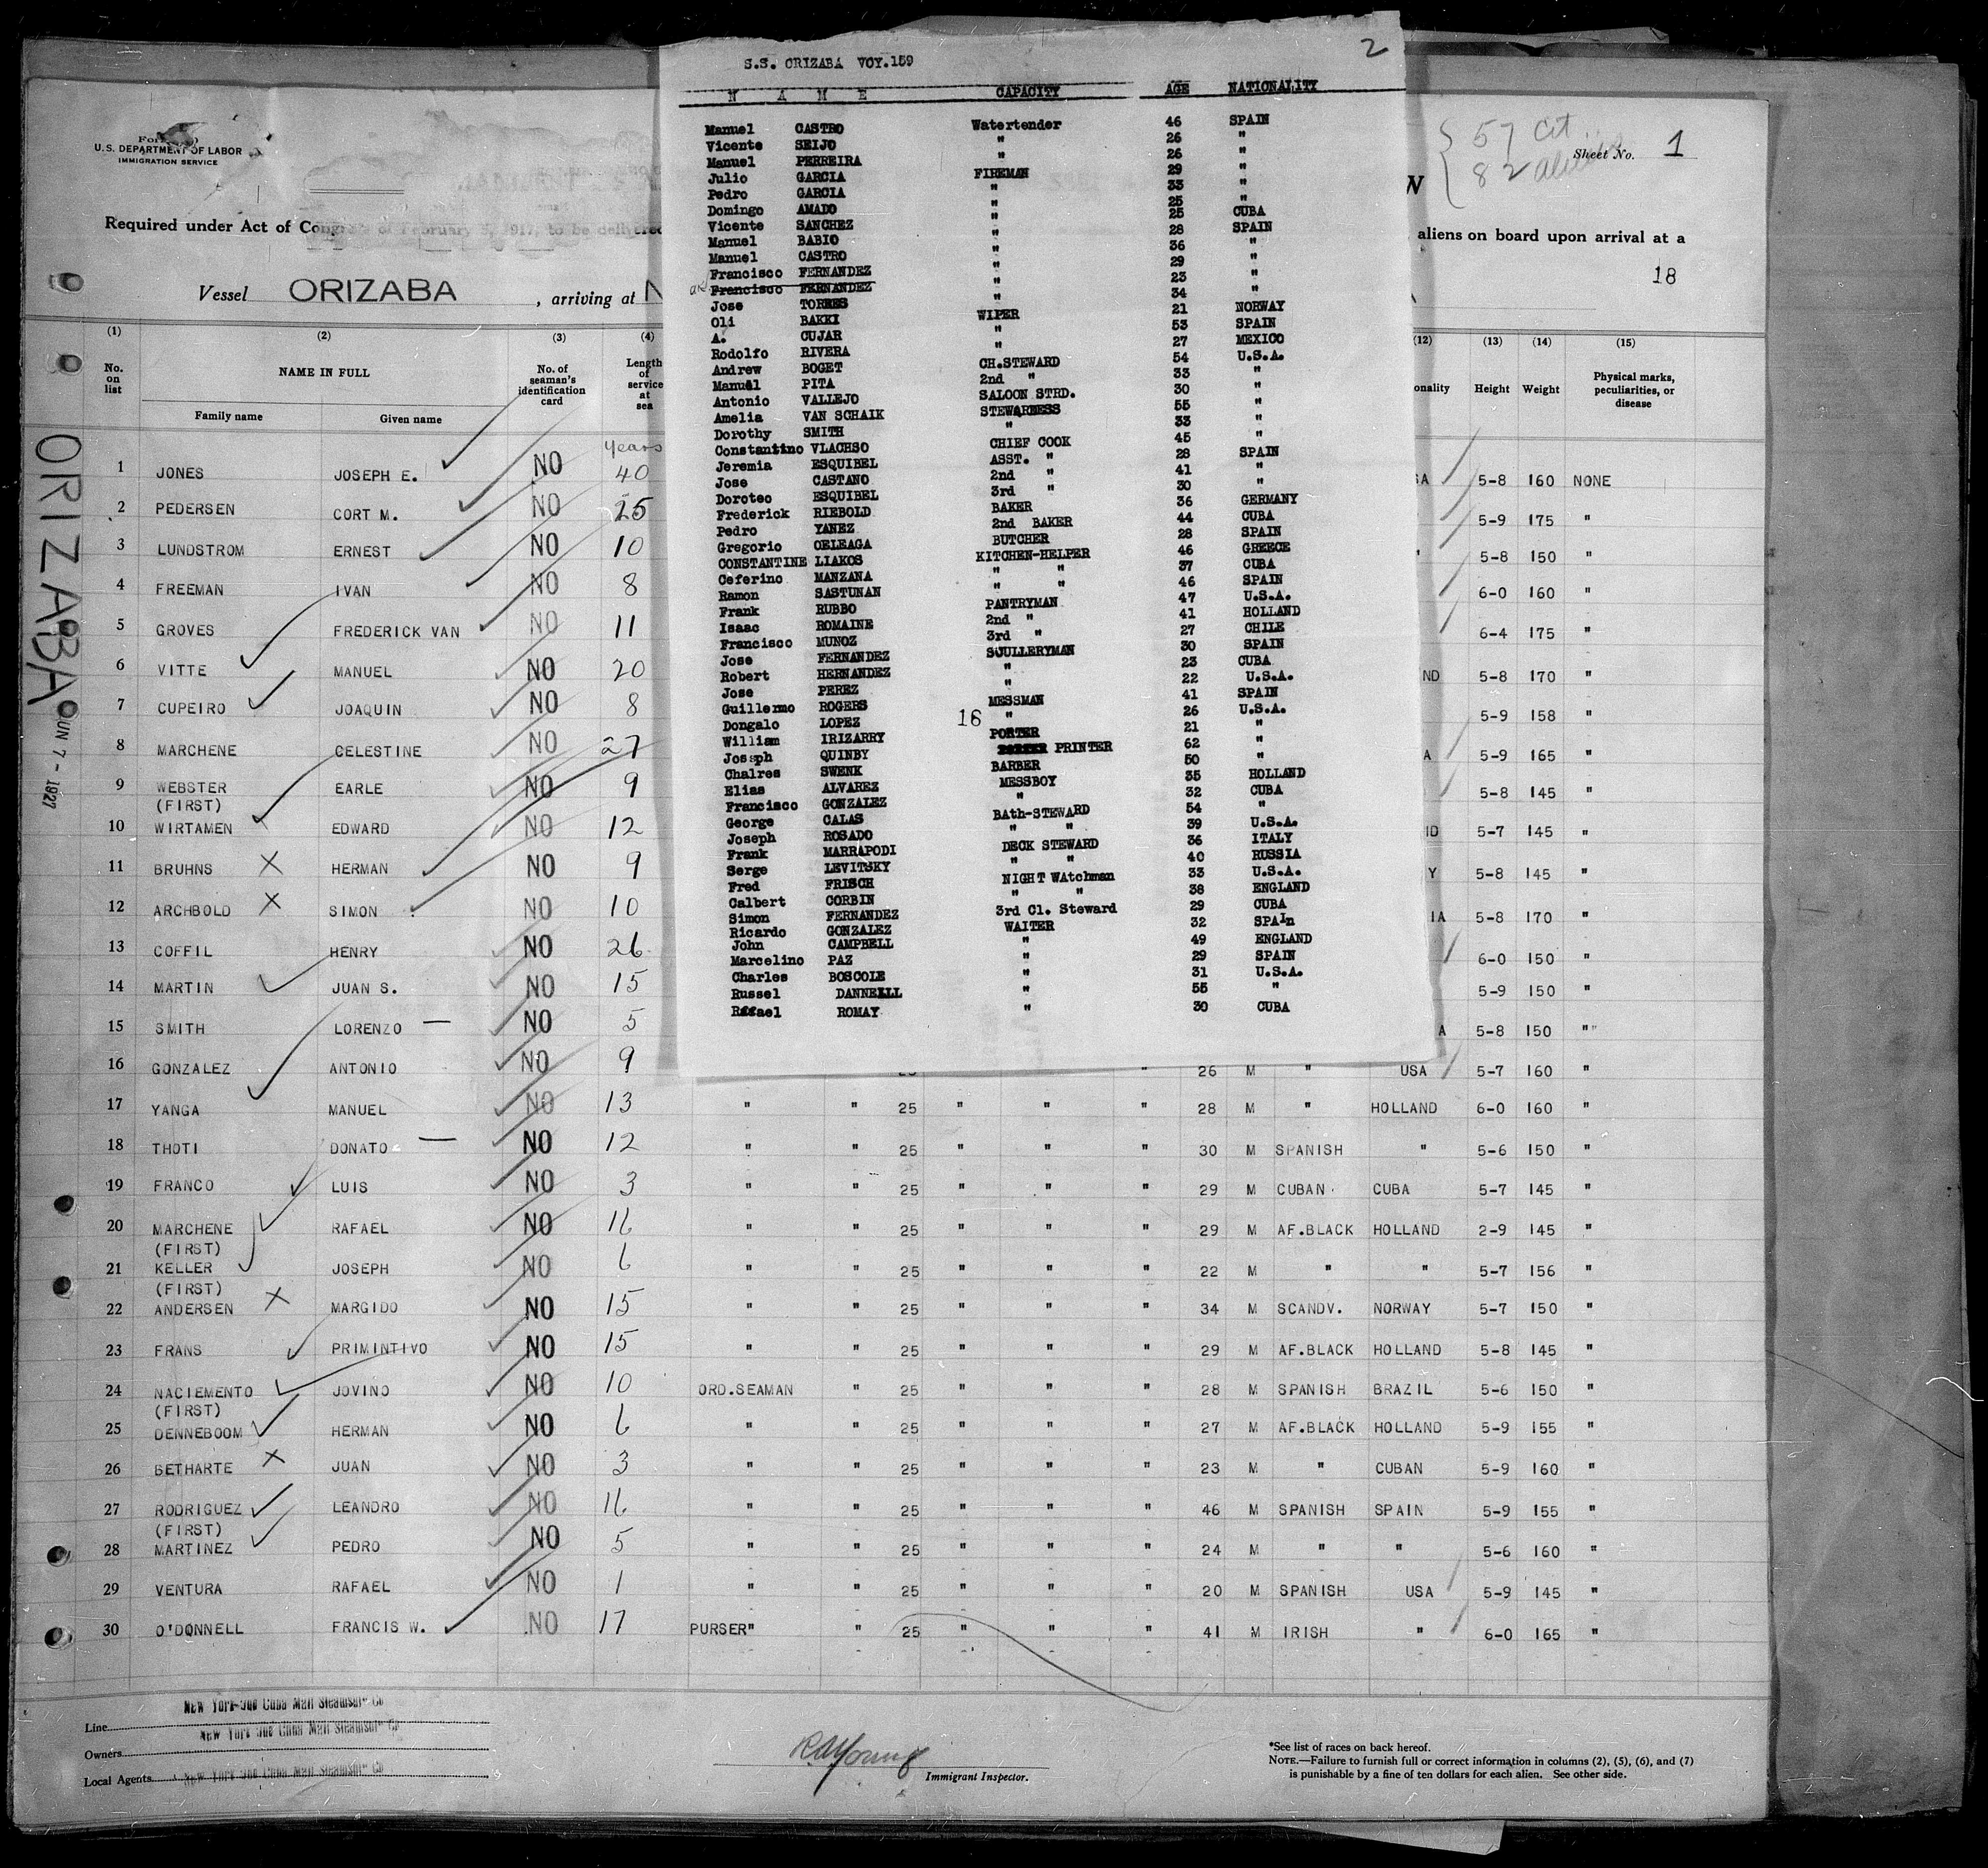 S.S. ORIZABA VOY.159
2
N A M E CAPACITY AGE NATIONALITY
Manuel CASTRO Watertender 46 SPAIN
Vicente SEIJO " 26 "
Manuel PERREIRA " 26 "
Julio GARCIA FIREMAN 29 "
Pedro GARCIA " 33 "
Domingo AMADO " 25 "
Vicente SANCHEZ " 25 CUBA
Manuel BABIO " 28 SPAIN
Manuel CASTRO " 36 "
Francisco FERNANDEZ " 29 "
Francisco FERNANDEZ " 23 "
Jose TORRES " 34 "
Oli BAKKI WIPER 21 NORWAY
A. CUJAR " 53 SPAIN
Rodolfo RIVERA " 27 MEXICO
Andrew BOGET CH.STEWARD 54 U.S.A.
Manuel PITA 2nd " 33 "
Antonio VALLEJO SALOON STRD. 30 "
Amelia VAN SCHAIK STEWARNESS 55 "
Dorothy SMITH " 33 "
Constantino VLACHSO CHIEF COOK 45 "
Jeremia ESQUIBEL ASST. " 28 SPAIN
Jose CASTANO 2nd " 41 "
Doroteo ESQUIBEL 3rd " 30 "
Frederick RIEBOLD BAKER 36 GERMANY
Pedro YANEZ 2nd BAKER 44 CUBA
Gregorio OELEAGA BUTCHER 28 SPAIN
CONSTANTINE LIAKOS KITCHEN-HELPER 46 GREECE
Ceferino MANZANA " " 37 CUBA
Ramon SASTUNAN " " 46 SPAIN
Frank RUBBO PANTRYMAN 47 U.S.A.
Isaac ROMAINE 2nd " 41 HOLLAND
Francisco MUNOZ 3rd " 27 CHILE
Jose FERNANDEZ SCULLERYMAN 30 SPAIN
Robert HERNANDEZ " 23 CUBA
Jose PEREZ " 22 U.S.A.
Guillermo ROGERS MESSMAN 41 SPAIN
Dongalo LOPEZ 16 " 26 U.S.A.
William IRIZARRY PORTER 21 "
Joseph QUINBY PRINTER 62 "
Chalres SWENK BARBER 50 "
Elias ALVAREZ MESSBOY 35 HOLLAND
Francisco GONZALEZ " 32 CUBA
George CALAS BAth-STEWARD 54 "
Joseph ROSADO " " 39 U.S.A.
Frank MARRAPODI DECK STEWARD 36 ITALY
Serge LEVITSKY " " 40 RUSSIA
Fred FRISCH NIGHT WAtchman 33 U.S.A.
Calbert CORBIN " " 38 ENGLAND
Simon FERNANDEZ 3rd Cl. Steward 29 CUBA
Ricardo GONZALEZ WAITER 32 SPAIn
John CAMPBELL " 49 ENGLAND
Marcelino PAZ " 29 SPAIN
Charles BOSCOLE " 31 U.S.A.
Russel DANNELLL " 55 "
Rafael ROMAY " 30 CUBA
U.S. DEPARTMENT OF LABOR
IMMIGRATION SERVICE
57 cit
82 aliens
Sheet No. 1
Required under Act of Congress of February 5, 1917, to be delivered
aliens on board upon arrival at a
18
Vessel ORIZABA, arriving at N
(1) (2) (3) (4) (12) (13) (14) (15)
No. on list NAME IN FULL No. of seaman's identification card Length of service at sea onality Height Weight Physical marks, peculiarities, or disease
Family name Given name
years
1 JONES JOSEPH E. NO 40 SA 5-8 160 NONE
2 PEDERSEN CORT M. NO 25 5-9 175 "
3 LUNDSTROM ERNEST NO 10 " 5-8 150 "
4 FREEMAN IVAN NO 8 6-0 160 "
5 GROVES FREDERICK VAN NO 11 6-4 175 "
6 VITTE MANUEL NO 20 ND 5-8 170 "
7 CUPEIRO JOAQUIN NO 8 5-9 158 "
8 MARCHENE CELESTINE NO 27 A 5-9 165 "
9 WEBSTER EARLE NO 9 5-8 145 "
(FIRST)
10 WIRTAMEN EDWARD NO 12 ID 5-7 145 "
11 BRUHNS X HERMAN NO 9 Y 5-8 145 "
12 ARCHBOLD X SIMON NO 10 IA 5-8 170 "
13 COFFIL HENRY NO 26 6-0 150 "
14 MARTIN JUAN S. NO 15 5-9 150 "
15 SMITH LORENZO — NO 5 A 5-8 150 "
16 GONZALEZ ANTONIO NO 9 " 26 M " USA 5-7 160 "
17 YANGA MANUEL NO 13 " " 25 " " " 28 M " HOLLAND 6-0 160 "
18 THOTI DONATO — NO 12 " " 25 " " " 30 M SPANISH " 5-6 150 "
19 FRANCO LUIS NO 3 " " 25 " " " 29 M CUBAN CUBA 5-7 145 "
20 MARCHENE RAFAEL NO 16 " " 25 " " " 29 M AF.BLACK HOLLAND 2-9 145 "
(FIRST)
21 KELLER JOSEPH NO 6 " " 25 " " " 22 M " " 5-7 156 "
(FIRST)
22 ANDERSEN X MARGIDO NO 15 " " 25 " " " 34 M SCANDV. NORWAY 5-7 150 "
23 FRANS PRIMINTIVO NO 15 " " 25 " " " 29 M AF.BLACK HOLLAND 5-8 145 "
24 NACIEMENTO JOVINO NO 10 ORD.SEAMAN " 25 " " " 28 M SPANISH BRAZIL 5-6 150 "
(FIRST)
25 DENNEBOOM HERMAN NO 6 " " 25 " " " 27 M AF.BLACK HOLLAND 5-9 155 "
26 BETHARTE X JUAN NO 3 " " 25 " " " 23 M " CUBAN 5-9 160 "
27 RODRIGUEZ LEANDRO NO 16 " " 25 " " " 46 M SPANISH SPAIN 5-9 155 "
(FIRST)
28 MARTINEZ PEDRO NO 5 " " 25 " " " 24 M " " 5-6 160 "
29 VENTURA RAFAEL NO 1 " " 25 " " " 20 M SPANISH USA 5-9 145 "
30 O'DONNELL FRANCIS W. NO 17 PURSER" " 25 " " " 41 M IRISH " 6-0 165 "
ORIZABA
JUN 7 - 1927
Line New York and Cuba Mail Steamship Co
Owners New York and Cuba Mail Steamship Co
Local Agents New York and Cuba Mail Steamship Co
RAYoung
Immigrant Inspector.
*See list of races on back hereof.
NOTE.—Failure to furnish full or correct information in columns (2), (5), (6), and (7)
is punishable by a fine of ten dollars for each alien. See other side.